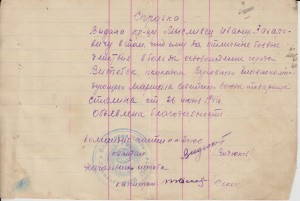 Справка
Выдана кр-цу Мысливец Ивану Захаро-
вичу в том, что ему за отличные боевые
действия в боях за освобождение города
Витебск приказом Верховного Главнокоман-
дующего Маршала Советского Союза товарища
Сталина от 26 июня 1944
Объявлена благодарность
капитан
начальник штаба
капитан